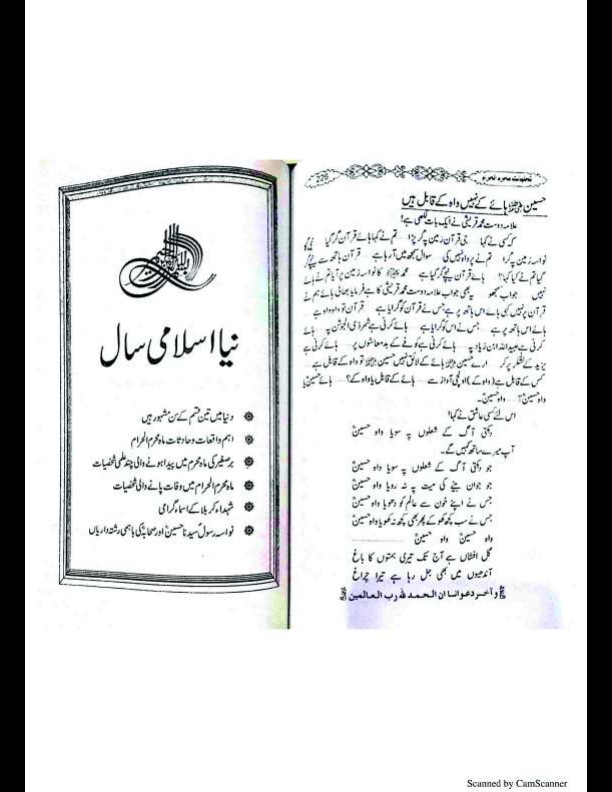 خطبات محرم الحرام
حسین ؓ ہائے کے نہیں واہ کے قابل ہیں
علامہ دوست محمد قریشی نے ایک بات لکھی ہے!
کہ کسی نے کہا جی قرآن زمین پہ گر پڑا تم نے کہا ہائے قرآن گر گیا
نواسہ زمین پہ گرا تم نے پرواہ نہیں کی سوال سمجھ میں آ رہا ہے قرآن ہاتھ سے
گیا تم نے کیا کہا؟ ہائے قرآن گر گیا ہے محمد کا نواسہ زمین پر آیا تم نے ہائے
نہیں جواب سمجھو یہ بھی جواب علامہ دوست محمد قریشی کا ہے فرمایا بھائی ہائے ہم نے
قرآن پر نہیں کی ہائے اس ہاتھ پر ہے جس نے قرآن کو گرایا ہے قرآن تو واہ واہ ہے
ہائے اس ہاتھ پر ہے جس نے اس کو گرایا ہے ہائے کرنی ہے شمر ذی الجوشن پہ ہائے
کرنی ہے عبیداللہ ابن زیاد پہ ہائے کرنی ہے کوفے کے بدمعاشوں پر ہائے کرنی ہے
یزید کے لشکر پر کر ارے حسین ؓ ہائے کے لائق نہیں حسین ؓ تو واہ کے قابل ہے
کس کے قابل ہے (واہ کے) اونچی آواز سے ہائے کے قابل یا واہ کے؟ ہائے حسینؓ یا
واہ حسینؓ؟ واہ حسینؓ۔
اس لئے کسی عاشق نے کہا!
دہکتی آگ کے شعلوں پہ سویا واہ حسینؓ
آپ میرے ساتھ کہیں گے۔
جو دہکتی آگ کے شعلوں پہ سویا واہ حسینؓ
جو جوان بیٹے کی میت پہ نہ رویا واہ حسینؓ
جس نے اپنے خون سے عالم کو دھویا واہ حسینؓ
جس نے سب کچھ کھو کے پھر بھی کچھ نہ کھویا واہ حسینؓ
واہ حسینؓ واہ حسینؓ
گل افشاں ہے آج تک تیری ہمتوں کا باغ
آندھیوں میں بھی جل رہا ہے تیرا چراغ
وآخر دعوانا ان الحمد للہ رب العالمین
نیا اسلامی سال
دنیا میں تین قسم کے سن مشہور ہیں
اہم واقعات و حادثات ماہ محرم الحرام
برصغیر کی ماہ محرم میں پیدا ہونے والی چند علمی شخصیات
ماہ محرم الحرام میں وفات پانے والی شخصیات
شہداء کربلا کے اسماء گرامی
نواسہ رسول سیدنا حسینؓ اور صحابہؓ کی باہمی رشتہ داریاں
Scanned by CamScanner